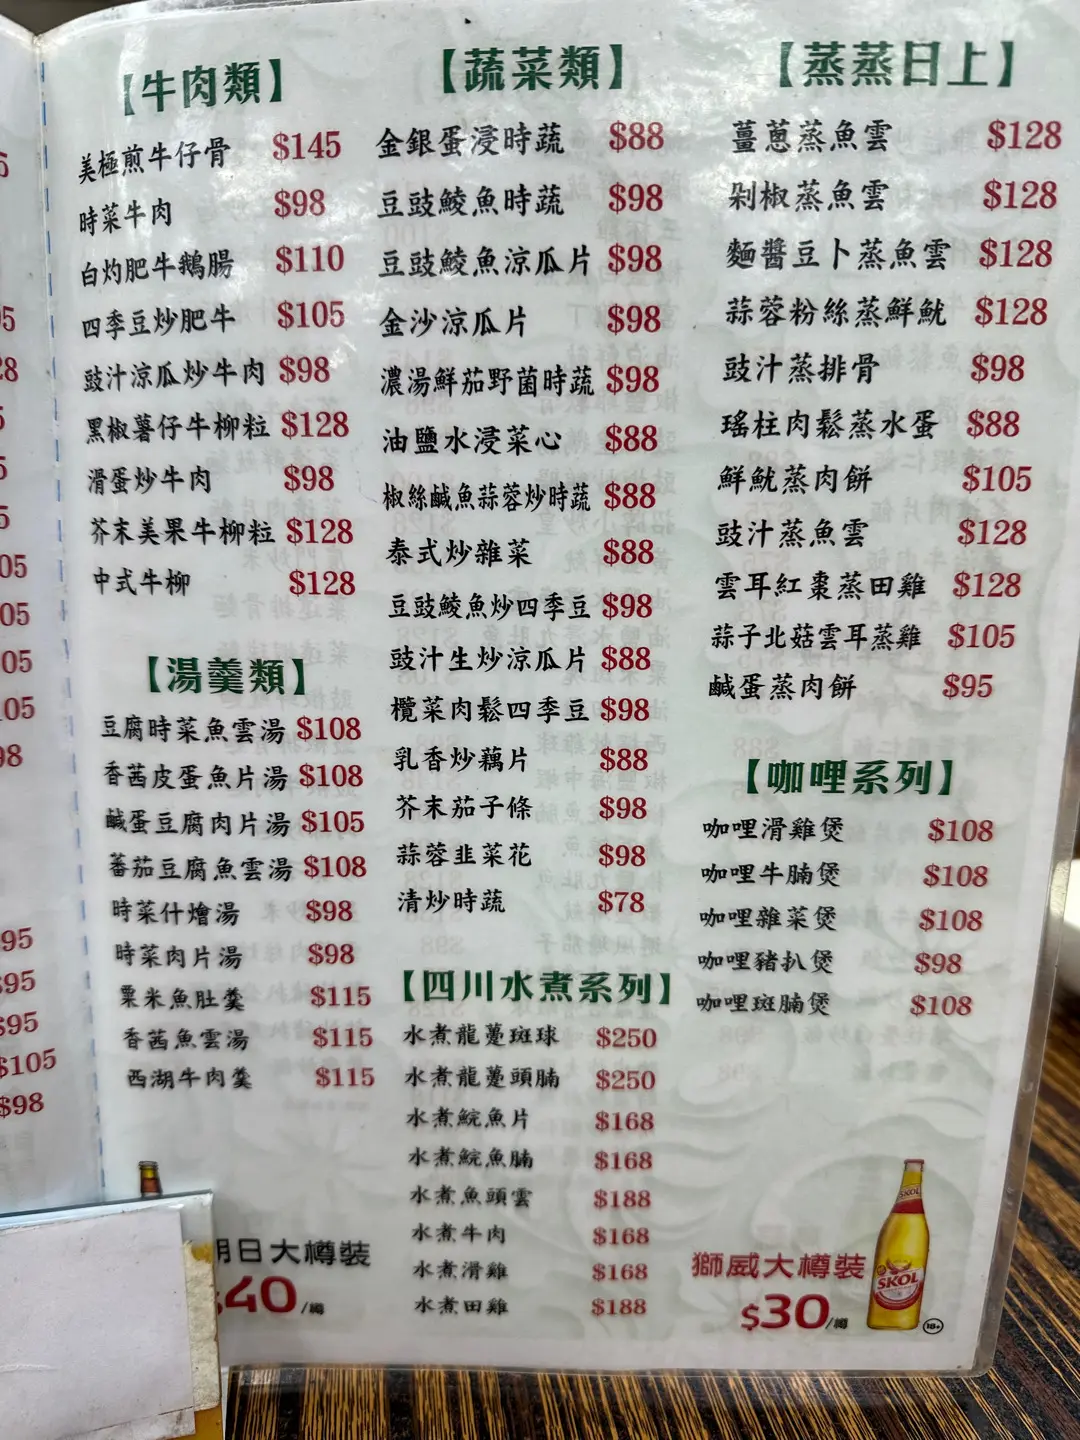 【牛肉類】
美極煎牛仔骨 $145
時菜牛肉 $98
白灼肥牛鵝腸 $110
四季豆炒肥牛 $105
豉汁涼瓜炒牛肉 $98
黑椒薯仔牛柳粒 $128
滑蛋炒牛肉 $98
芥末美果牛柳粒 $128
中式牛柳 $128
【湯羹類】
豆腐時菜魚雲湯 $108
香茜皮蛋魚片湯 $108
鹹蛋豆腐肉片湯 $105
蕃茄豆腐魚雲湯 $108
時菜什燴湯 $98
時菜肉片湯 $98
粟米魚肚羹 $115
香茜魚雲湯 $115
西湖牛肉羹 $115
日大樽裝
$40/樽
【蔬菜類】
金銀蛋浸時蔬 $88
豆豉鯪魚時蔬 $98
豆豉鯪魚涼瓜片 $98
金沙涼瓜片 $98
濃湯鮮茄野菌時蔬 $98
油鹽水浸菜心 $88
椒絲鹹魚蒜蓉炒時蔬 $88
泰式炒雜菜 $88
豆豉鯪魚炒四季豆 $98
豉汁生炒涼瓜片 $88
欖菜肉鬆四季豆 $98
乳香炒藕片 $88
芥末茄子條 $98
蒜蓉韭菜花 $98
清炒時蔬 $78
【四川水煮系列】
水煮龍躉斑球 $250
水煮龍躉頭腩 $250
水煮鯇魚片 $168
水煮鯇魚腩 $168
水煮魚頭雲 $188
水煮牛肉 $168
水煮滑雞 $168
水煮田雞 $188
【蒸蒸日上】
薑蔥蒸魚雲 $128
剁椒蒸魚雲 $128
麵醬豆卜蒸魚雲 $128
蒜蓉粉絲蒸鮮魷 $128
豉汁蒸排骨 $98
瑤柱肉鬆蒸水蛋 $88
鮮魷蒸肉餅 $105
豉汁蒸魚雲 $128
雲耳紅棗蒸田雞 $128
蒜子北菇雲耳蒸雞 $105
鹹蛋蒸肉餅 $95
【咖哩系列】
咖哩滑雞煲 $108
咖哩牛腩煲 $108
咖哩雜菜煲 $108
咖哩豬扒煲 $98
咖哩斑腩煲 $108
獅威大樽裝
$30/樽
SKOL
SKOL
18+
5
28
05
05
05
05
98
95
$95
$95
$105
$98